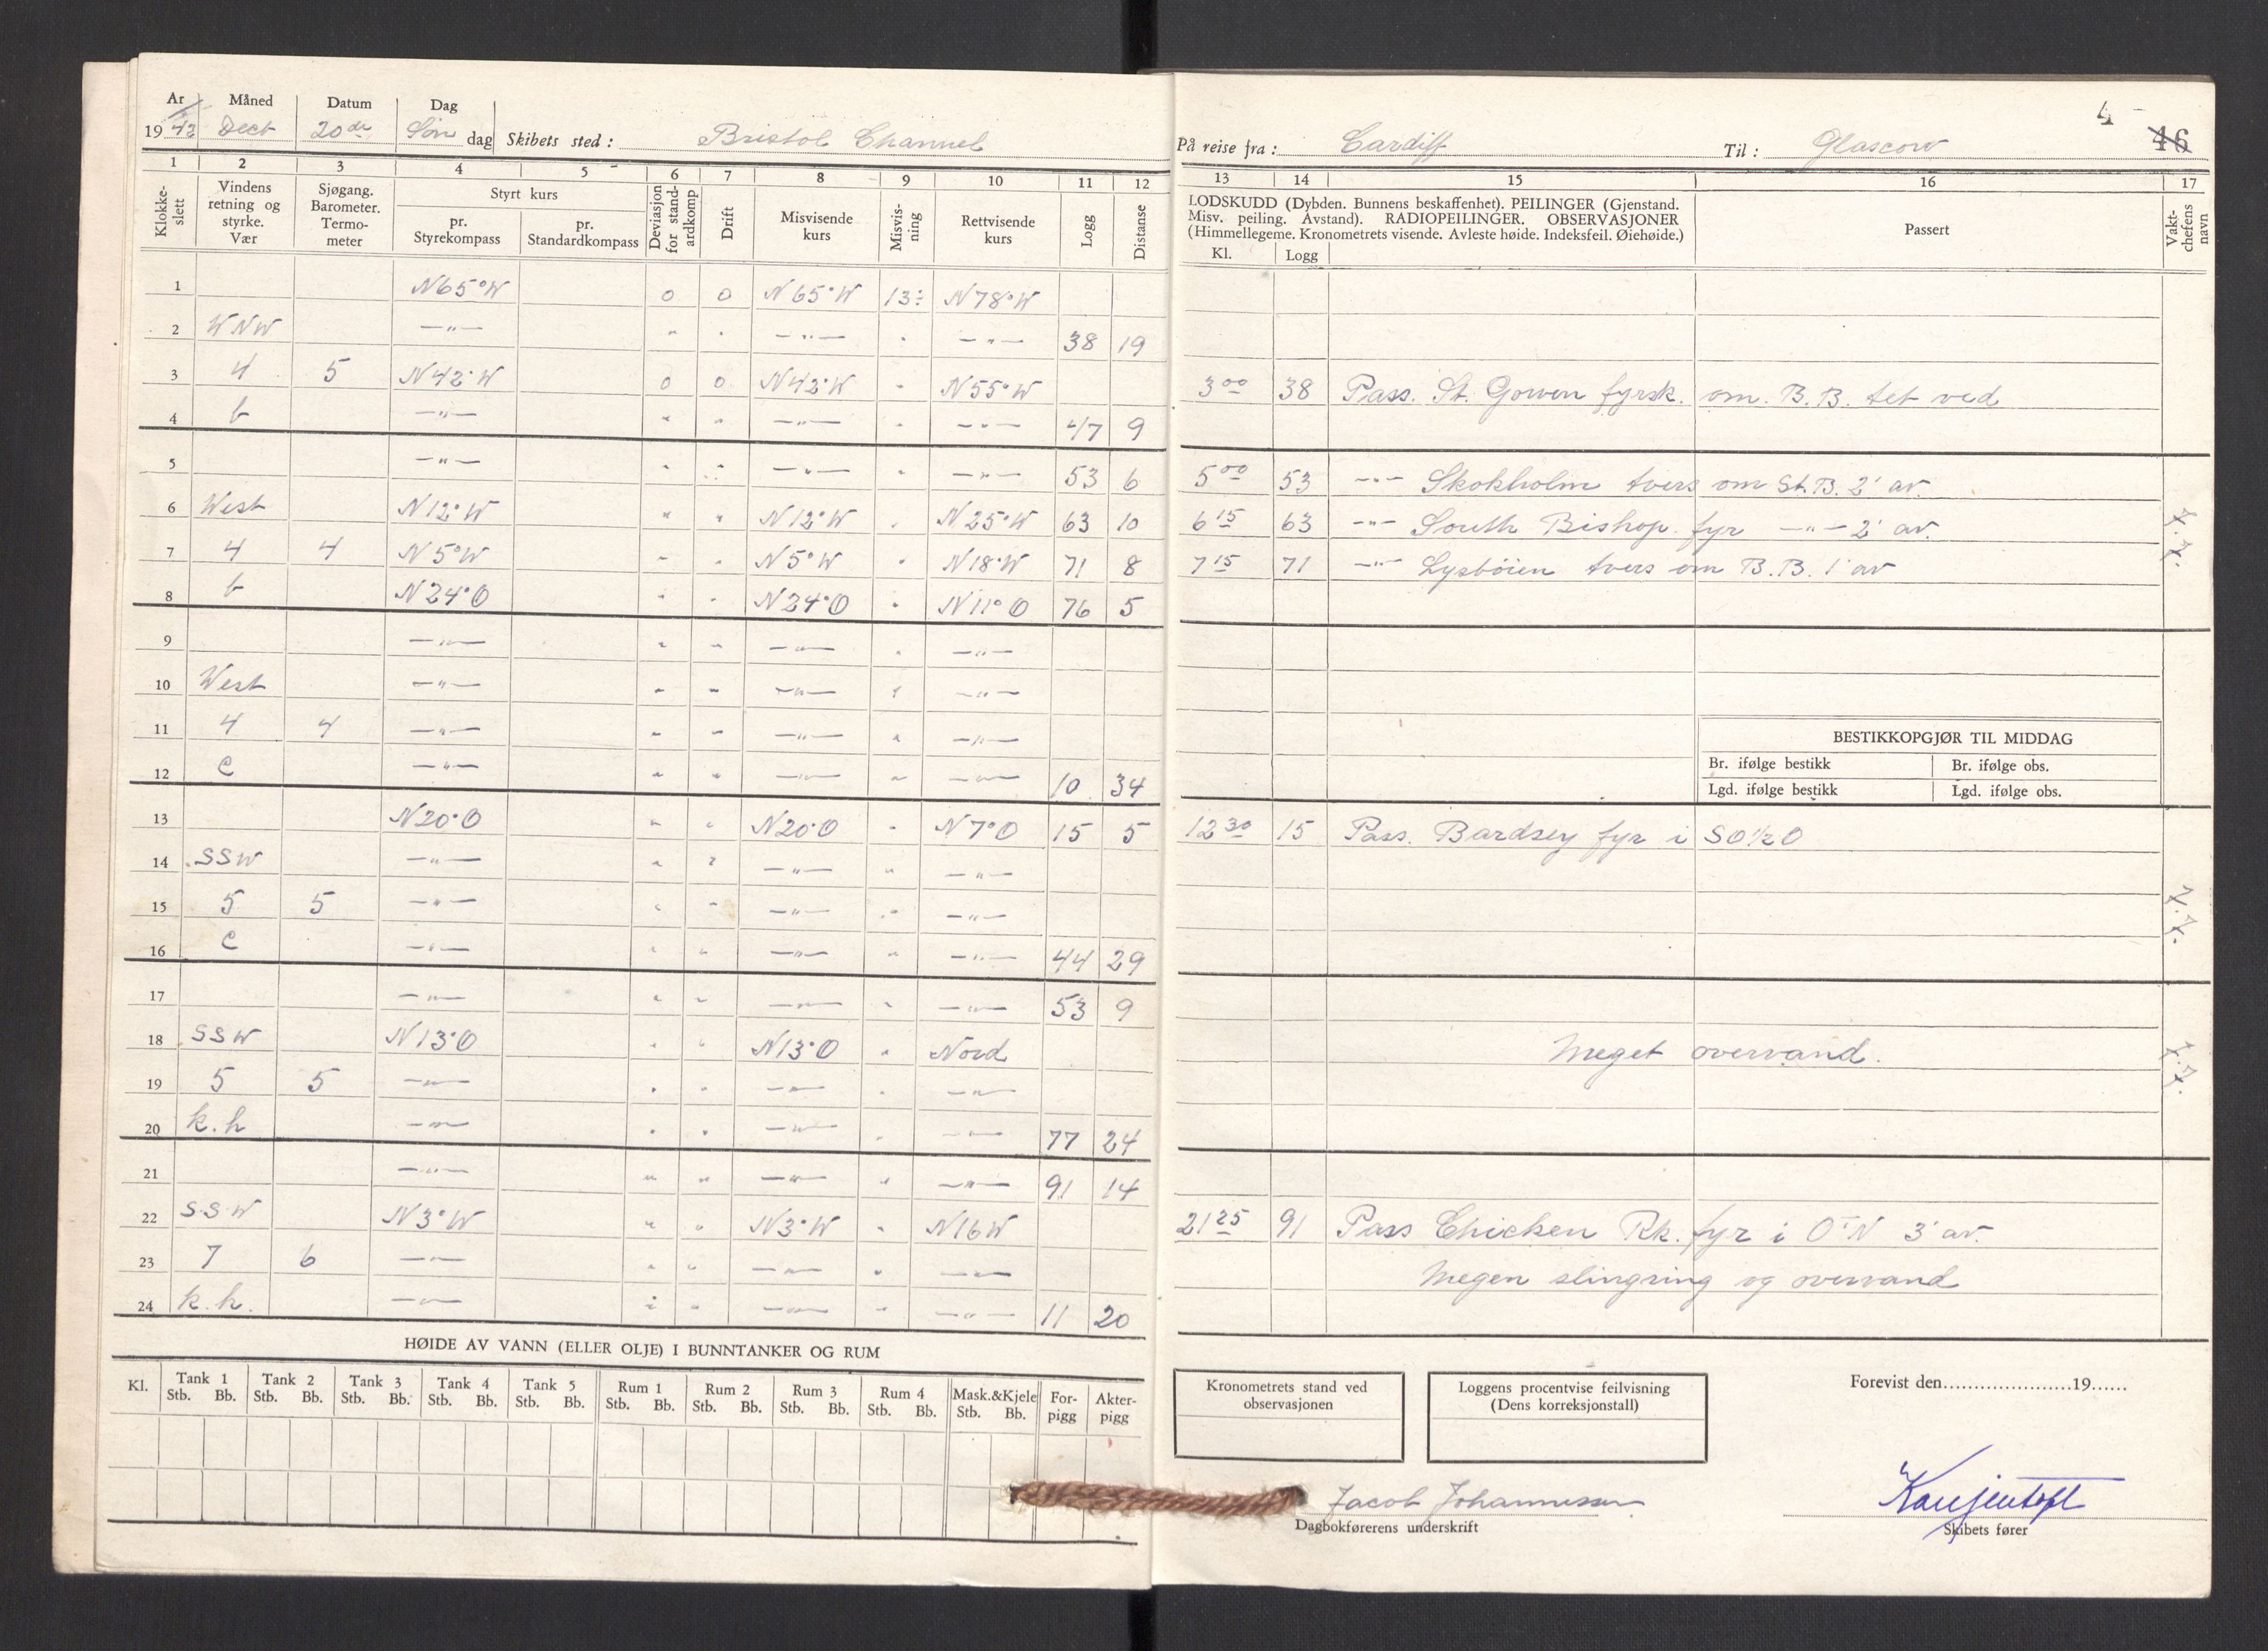 År Måned Datum Dag
1942 Decb 20de Søn dag Skibets sted: Bristol Channel
På reise fra: Cardiff Til: Glascow
4
46
1 2 3 4 5 6 7 8 9 10 11 12
13 14 15 16 17
Klokke-slett
Vindens retning og styrke. Vær
Sjøgang. Barometer. Termo-meter
Styrt kurs
pr. Styrekompass
pr. Standardkompass
Deviasjon for stand-ardkomp
Drift
Misvisende kurs
Misvis-ning
Rettvisende kurs
Logg
Distanse
LODSKUDD (Dybden. Bunnens beskaffenhet). PEILINGER (Gjenstand.
Misv. peiling. Avstand). RADIOPEILINGER. OBSERVASJONER
(Himmellegeme. Kronometrets visende. Avleste høide. Indeksfeil. Øiehøide.)
Kl. Logg
Passert
Vakt-chefens navn
1 N65°W 0 0 N65°W 13° N78°W
2 WNW —"— " " —"— " —"— 38 19
3 4 5 N42°W 0 0 N42°W " N55°W
3 00 38 Pass. St. Gowen fyrsk. om. B.B. tet ved
4 b —"— " " —"— " —"— 47 9
5 —"— " " —"— " —"— 53 6
5 00 53 —"— Skokholm tvers om St.B. 2' av.
6 West N12°W " " N12°W " N25°W 63 10
6 15 63 —"— South Bishop. fyr —"— 2' av.
7 4 4 N5°W " " N5°W " N18°W 71 8
7 15 71 —"— Lysbøien tvers om B.B. 1' av
8 b N24°O " " N24°O " N11°O 76 5
9 —"— " " —"— " —"—
10 West —"— " " —"— " —"—
11 4 4 —"— " " —"— " —"—
12 c —"— " " —"— " —"— 10 34
BESTIKKOPGJØR TIL MIDDAG
Br. ifølge bestikk Br. ifølge obs.
Lgd. ifølge bestikk Lgd. ifølge obs.
13 N20°O " " N20°O " N7°O 15 5
12 30 15 Pass. Bardsey fyr i SO½O
14 SSW —"— " " —"— " —"—
15 5 5 —"— " " —"— " —"—
16 c —"— " " —"— " —"— 44 29
17 —"— " " —"— " —"— 53 9
18 SSW N13°O " " N13°O " Nord
Meget overvand.
19 5 5 —"— " " —"— " —"—
20 k.h —"— " " —"— " —"— 77 24
21 —"— " " —"— " —"— 91 14
22 SSW N3°W " " N3°W " N16W
21 25 91 Pass Chicken Rk. fyr i OTN 3' av.
23 7 6 —"— " " —"— " —"—
Megen slingring og overvand
24 k.h. —"— " " —"— " —"— 11 20
HØIDE AV VANN (ELLER OLJE) I BUNNTANKER OG RUM
Kl. Tank 1 Tank 2 Tank 3 Tank 4 Tank 5 Rum 1 Rum 2 Rum 3 Rum 4 Mask.&Kjele For-pigg Akter-pigg
Stb. Bb. Stb. Bb. Stb. Bb. Stb. Bb. Stb. Bb. Stb. Bb. Stb. Bb. Stb. Bb. Stb. Bb. Stb. Bb.
Kronometrets stand ved
observasjonen
Loggens procentvise feilvisning
(Dens korreksjonstall)
Forevist den.....................19......
Jacob Johannessen
Dagbokførerens underskrift
Skibets fører